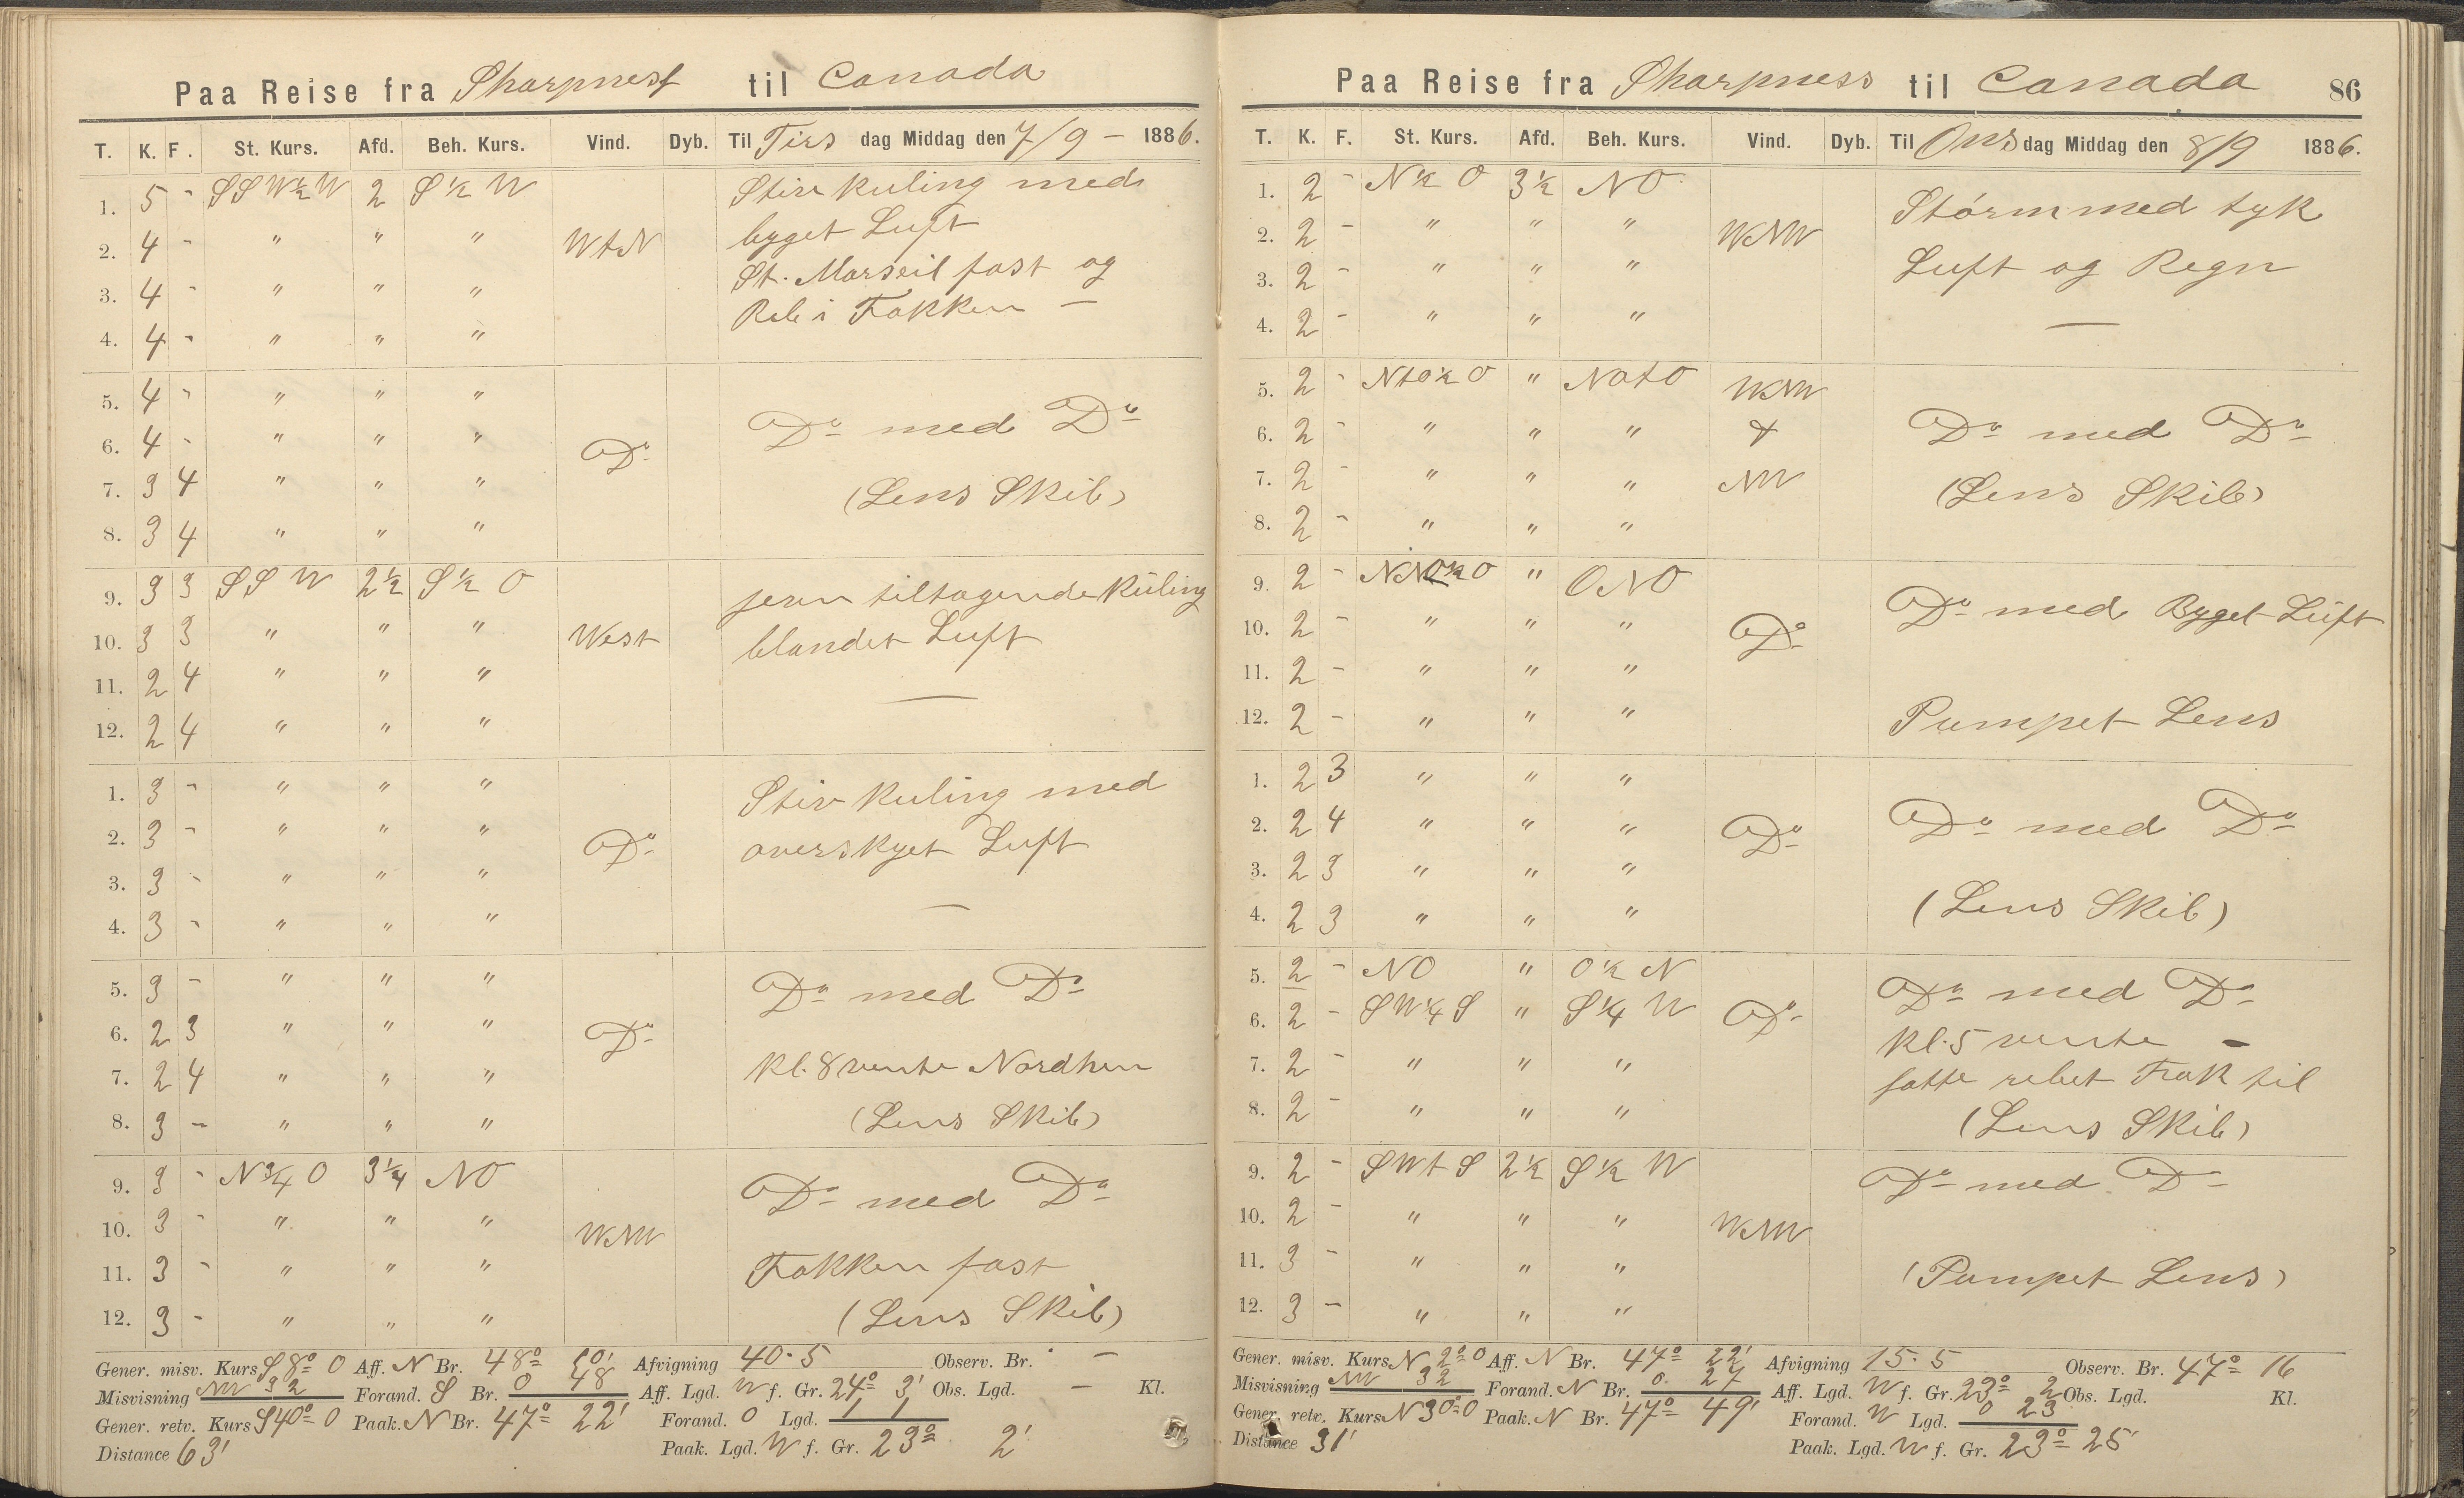 Paa Reise fra Sharpness til Canada
T. K. F. St. Kurs. Afd. Beh. Kurs. Vind. Dyb. Til Tirsdag Middag den 7/9 – 1886.
1. 5 - SSW½W 2 S½W Stiv Kuling med
2. 4 - " " " WtN byget Luft
3. 4 - " " " St. Mærseil fast og
4. 4 - " " " Reb i Fokken –
5. 4 - " " "
6. 4 - " " " Do Do med Do
7. 3 4 " " "
8. 3 4 " " " (Lens Skib)
9. 3 3 SSW 2½ S½O jevn tiltagende Kuling
10. 3 3 " " " West blandet Luft
11. 2 4 " " " —
12. 2 4 " " "
1. 3 - " " " Stiv Kuling med
2. 3 - " " " Do overskyet Luft
3. 3 - " " "
4. 3 - " " " —
5. 3 - " " " Do med Do
6. 2 3 " " " Do
7. 2 4 " " " Kl. 8 vente Nordhen
8. 3 - " " " (Lens Skib)
9. 3 - N¾O 3¼ NO Do med Do
10. 3 - " " " WNW
11. 3 - " " " Fokken fast
12. 3 - " " " (Lens Skib)
Gener. misv. Kurs S8°O Aff. N Br. 48° 10' Afvigning 40.5 Observ. Br. –
Misvisning NW 32 Forand. S Br. 0 48 Aff. Lgd. W f. Gr. 24° 3' Obs. Lgd. – Kl.
Gener. retv. Kurs S40°O Paak. N Br. 47° 22' Forand. O Lgd. 1 1
Distance 63' Paak. Lgd. W f. Gr. 23° 2'
Paa Reise fra Sharpness til Canada 86
T. K. F. St. Kurs. Afd. Beh. Kurs. Vind. Dyb. Til Onsdag Middag den 8/9 1886.
1. 2 - N½O 3½ NO Storm med tyk
2. 2 - " " " WNW
3. 2 - " " " Luft og Regn
4. 2 - " " " —
5. 2 - NtO½O " NOtO WNW
6. 2 - " " " & Do med Do
7. 2 - " " " NW (Lens Skib)
8. 2 - " " "
9. 2 - NNO½O " ONO Do med Byget Luft
10. 2 - " " " Do
11. 2 - " " "
12. 2 - " " " Pumpet Lens
1. 2 3 " " "
2. 2 4 " " " Do Do med Do
3. 2 3 " " "
4. 2 3 " " " (Lens Skib)
5. 2 - NO " O½N Do med Do
6. 2 - SW¼S " S¼W Do Kl. 5 vente –
7. 2 - " " " satte rebet Fok til
8. 2 - " " " (Lens Skib)
9. 2 - SWtS 2½ S½W Do med Do
10. 2 - " " " WNW
11. 3 - " " " (Pumpet Lens)
12. 3 - " " "
Gener. misv. Kurs N2°O Aff. N Br. 47° 22' Afvigning 15.5 Observ. Br. 47° 16
Misvisning NW 32 Forand. N Br. 0. 27 Aff. Lgd. W f. Gr. 23° 2 Obs. Lgd. Kl.
Gener. retv. Kurs N30°O Paak. N Br. 47° 49' Forand. W Lgd. 0 23
Distance 31' Paak. Lgd. W f. Gr. 23° 25'